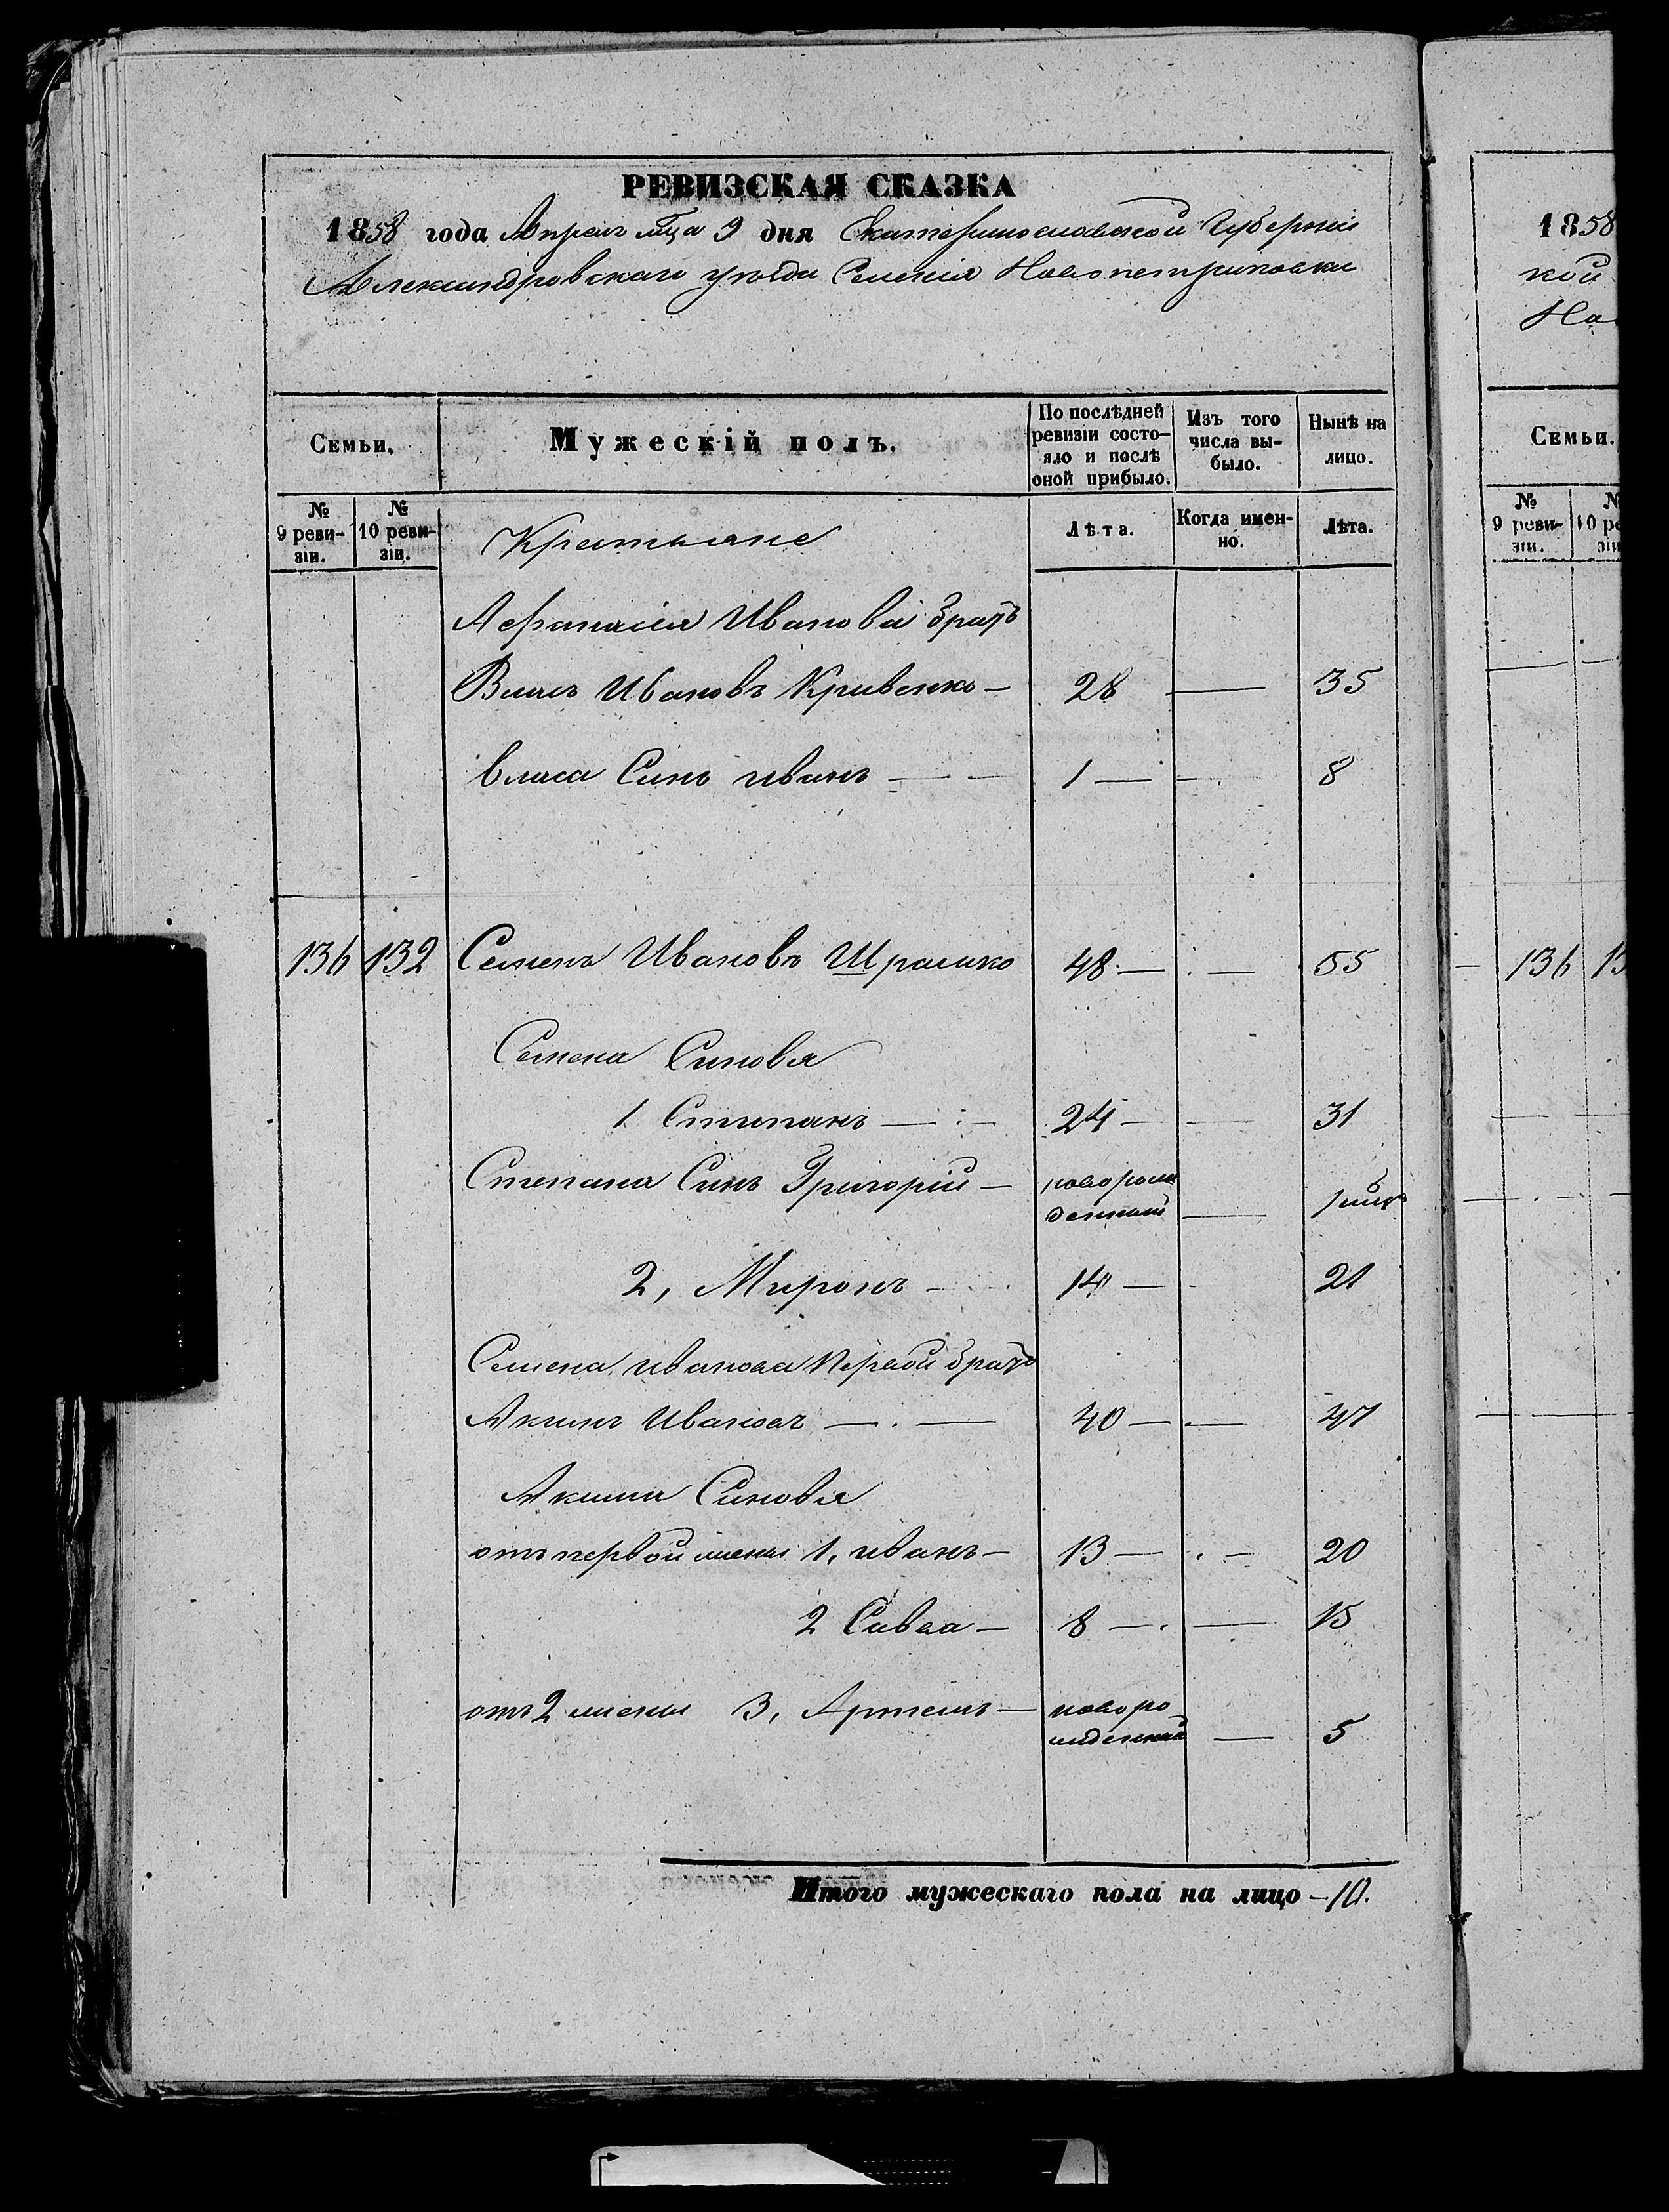 РЕВИЗСКАЯ СКАЗКА
1858 года Апреля мца 9 дня Екатеринославской Губернии
Александровскаго уезда Селения Новопетриковки
Семьи,
Мужескій полъ.
По послѣдней
ревизіи состо-
яло и послѣ
оной прибыло.
Изъ того
числа вы-
было.
Нынѣ на
лицо.
№
9 реви-
зіи.
№
10 реви-
зіи.
Крестьяне
Лѣта.
Когда имен-
но.
Лѣта.
Афанасия Иванова братъ
Власъ Ивановъ Кривенко — 28 — 35
Власа Синъ иванъ — — 1 — — 8
136 132 Семенъ Ивановъ Шрамко 48 — — 55
Семена Синовя
1 Степанъ — — 24 — — 31
Степана Синъ Григорий — новорож
денный —
2, Миронъ — 14 — 21
Семена Иванова Первой братъ
Акимъ Ивановъ — — 40 — — 47
Акима Синовя
отъ первой жены 1, иванъ — 13 — — 20
2 Савва — 8 — — 15
отъ 2 жены 3, Артемъ — новоро
жденный — 5
Итого мужескаго пола на лицо — 10.
1858
кой
Но
Семьи.
№
9 реви-
зіи.
№
10 ре
зіи
136 13